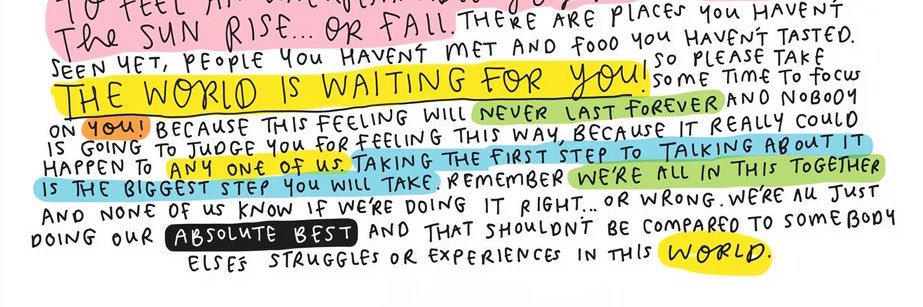 TO FEEL AN
THE SUN RISE... OR FALL. THERE ARE PLACES YOU HAVEN'T
SEEN YET, PEOPLE YOU HAVEN'T MET AND FOOD YOU HAVEN'T TASTED.
THE WORLD IS WAITING FOR YOU! SO PLEASE TAKE
SOME TIME TO FOCUS
ON YOU! BECAUSE THIS FEELING WILL NEVER LAST FOREVER AND NOBODY
IS GOING TO JUDGE YOU FOR FEELING THIS WAY, BECAUSE IT REALLY COULD
HAPPEN TO ANY ONE OF US. TAKING THE FIRST STEP TO TALKING ABOUT IT
IS THE BIGGEST STEP YOU WILL TAKE. REMEMBER WE'RE ALL IN THIS TOGETHER
AND NONE OF US KNOW IF WE'RE DOING IT RIGHT... OR WRONG. WE'RE ALL JUST
DOING OUR ABSOLUTE BEST AND THAT SHOULDN'T BE COMPARED TO SOMEBODY
ELSE'S STRUGGLES OR EXPERIENCES IN THIS WORLD.